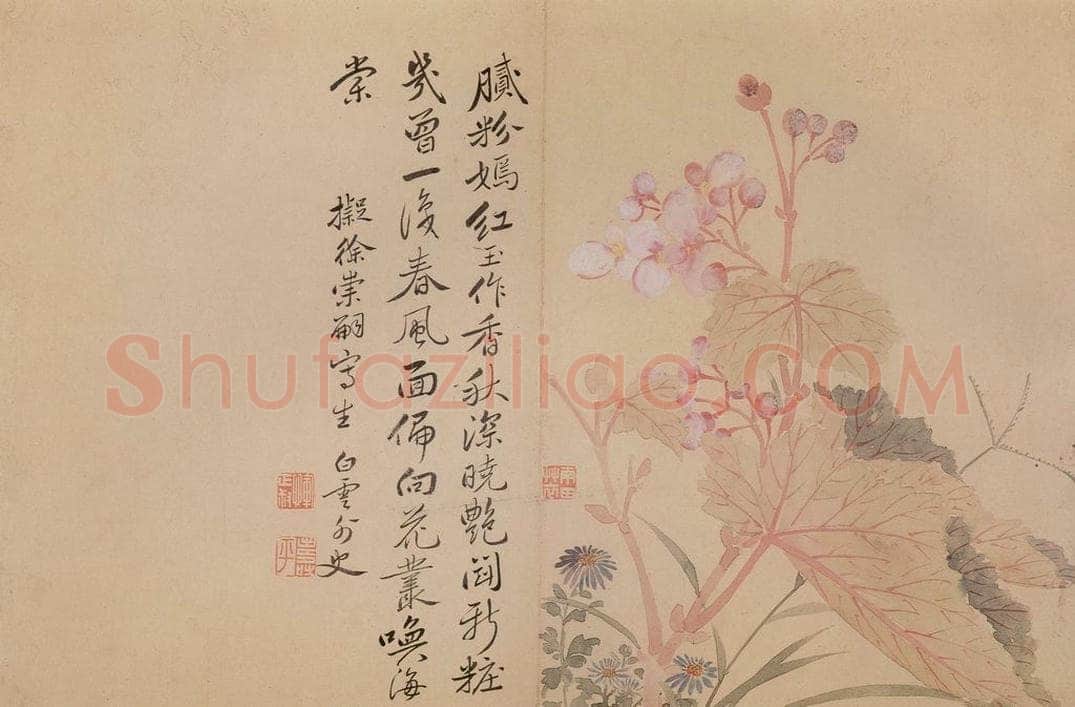 膩粉嫣紅玉作香秋深曉艷鬥新粧
幾曾一復春風面偏向花叢喚海
棠
擬徐崇嗣寫生 白雲外史
南田
Shufaziliao.COM